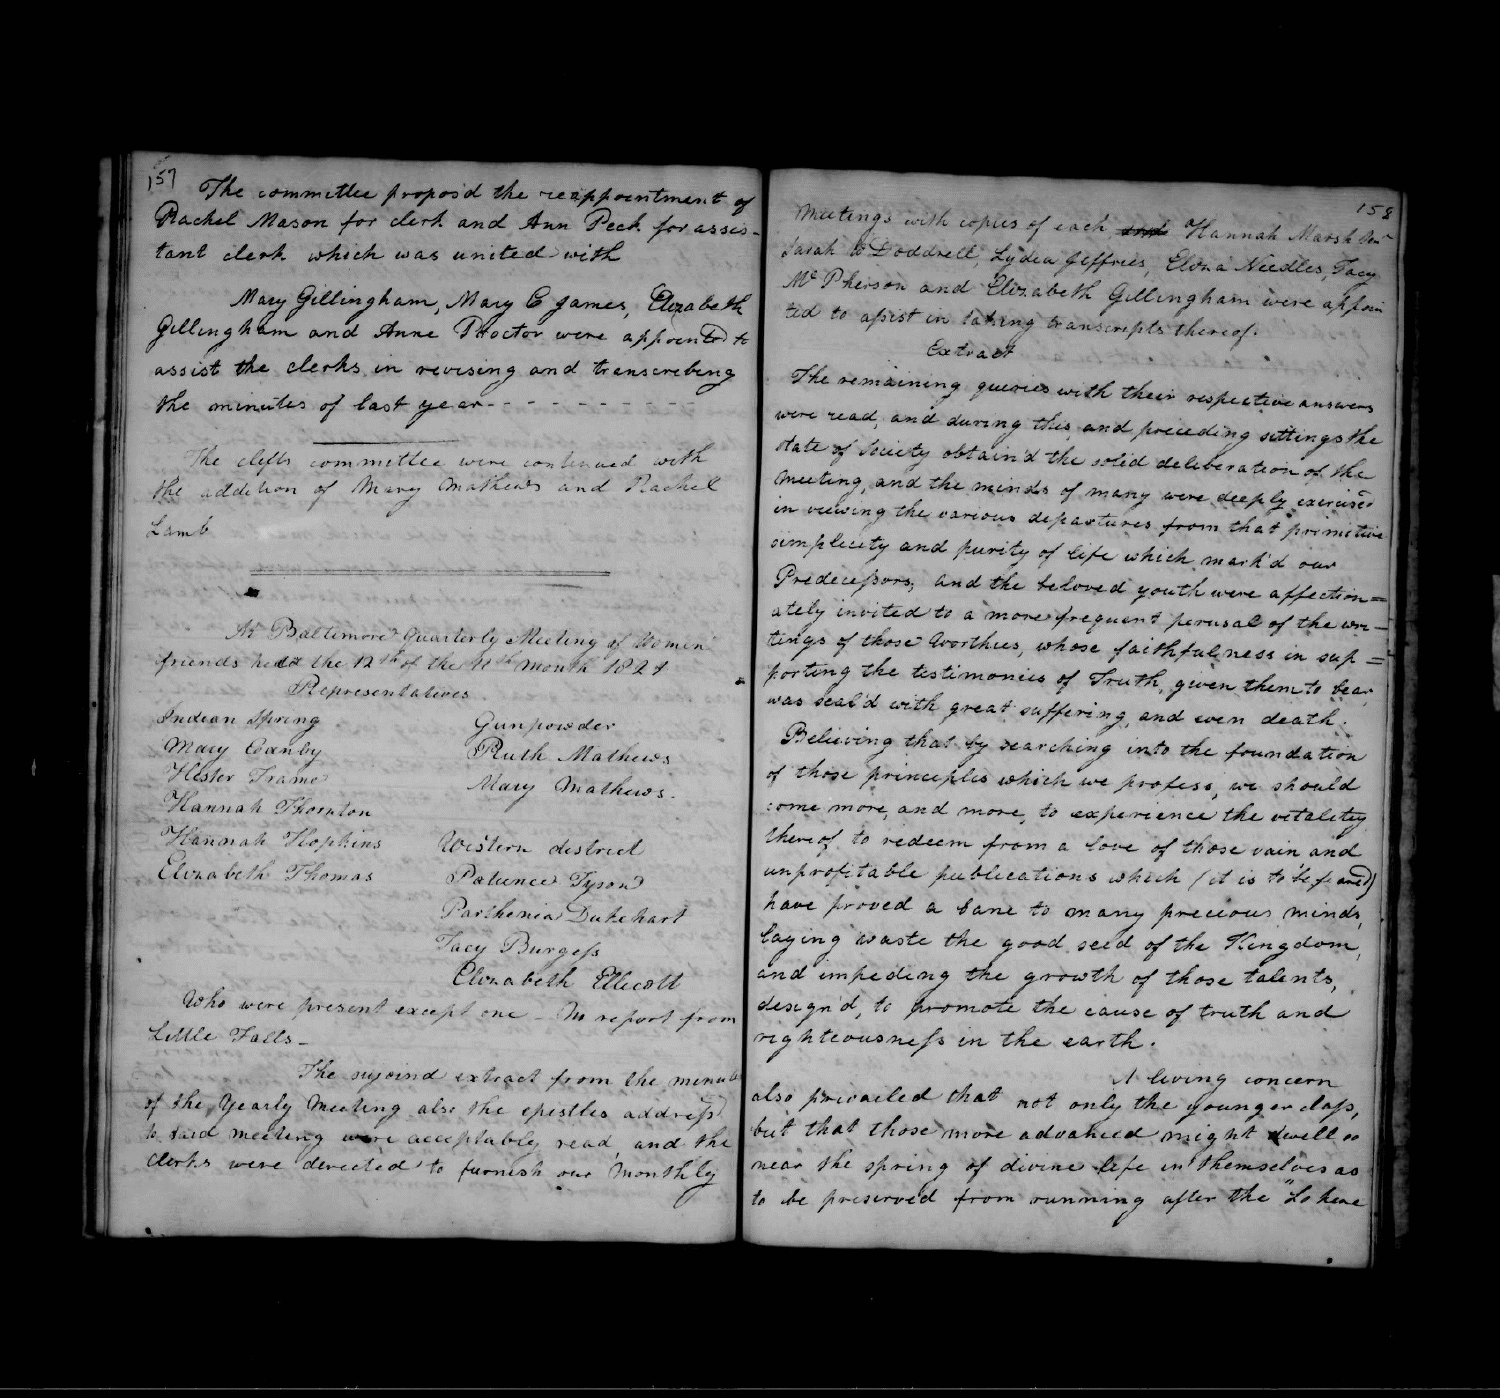 157
The committee propos'd the reappointment of
Rachel Mason for clerk and Ann Peck for assis-
tant clerk which was united with
Mary Gillingham, Mary E James, Elizabeth
Gillingham and Anne Proctor were appointed to
assist the clerks in revising and transcribing
the minutes of last year - - - - - - - - - -
The clefts committee were continued with
the addition of Mary Mathews and Rachel
Lamb
At Baltimore Quarterly Meeting of Women
friends held the 12th of the 11th month 1821
Representatives
Indian Spring
Mary Canby
Hester Frame
Hannah Thornton
Hannah Hopkins
Elizabeth Thomas
Gunpowder
Ruth Mathews
Mary Mathews.
Western district
Patience Tyson
Parthenia Dukehart
Tacy Burgess
Elizabeth Ellicott
Who were present except one - No report from
Little Falls -
The sujoind extract from the minute
of the Yearly Meeting also the epistles address'd
to said meeting were acceptably read, and the
clerks were directed to furnish our Monthly
158
Meetings with copies of each and Hannah Marsh
Sarah W Doddrell, Lydia Jeffries, Eliza Needles, Tacy
Mc Pherson and Elizabeth Gillingham were appoin
ted to assist in taking transcripts thereof.
Extract
The remaining queries with their respective answers
were read, and during this, and preceding sittings the
state of Society obtain'd the solid deliberation of the
Meeting, and the minds of many were deeply exercised
in viewing the various departures from that primitive
simplicity and purity of life which mark'd our
Predecessors, and the beloved youth were affection=
ately invited to a more frequent perusal of the wri-
tings of those Worthies, whose faithfulness in sup =
porting the testimonies of Truth, given them to bear
was seal'd with great suffering, and even death.
Believing that by searching into the foundation
of those principles which we profess, we should
come more, and more, to experience the vitality
thereof, to redeem from a love of those vain and
unprofitable publications which (it is to be feared)
have proved a bane to many precious minds,
laying waste the good seed of the Kingdom,
and impeding the growth of those talents,
design'd, to promote the cause of truth and
righteousness in the earth.
A living concern
also prevailed that not only the younger class,
but that those more advanced might dwell so
near the spring of divine life in themselves as
to be preserved from running after the "Lo here